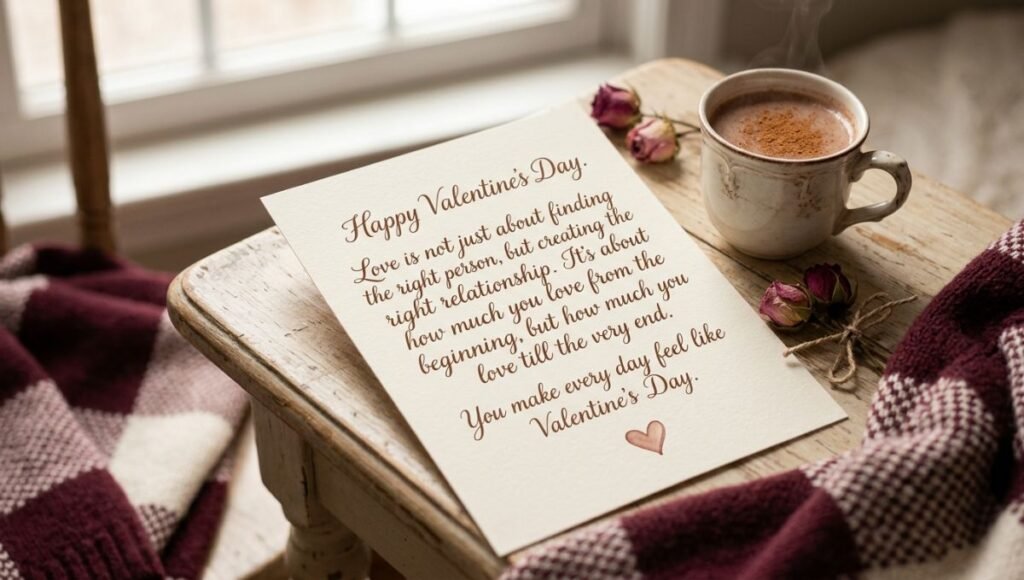 Happy Valentine's Day.
Love is not just about finding
the right person, but creating the
right relationship. It's about
how much you love from the
beginning, but how much you
love till the very end.
You make every day feel like
Valentine's Day.